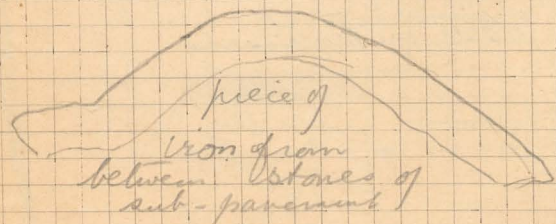 piece of
iron from
between stones of
sub-pavement